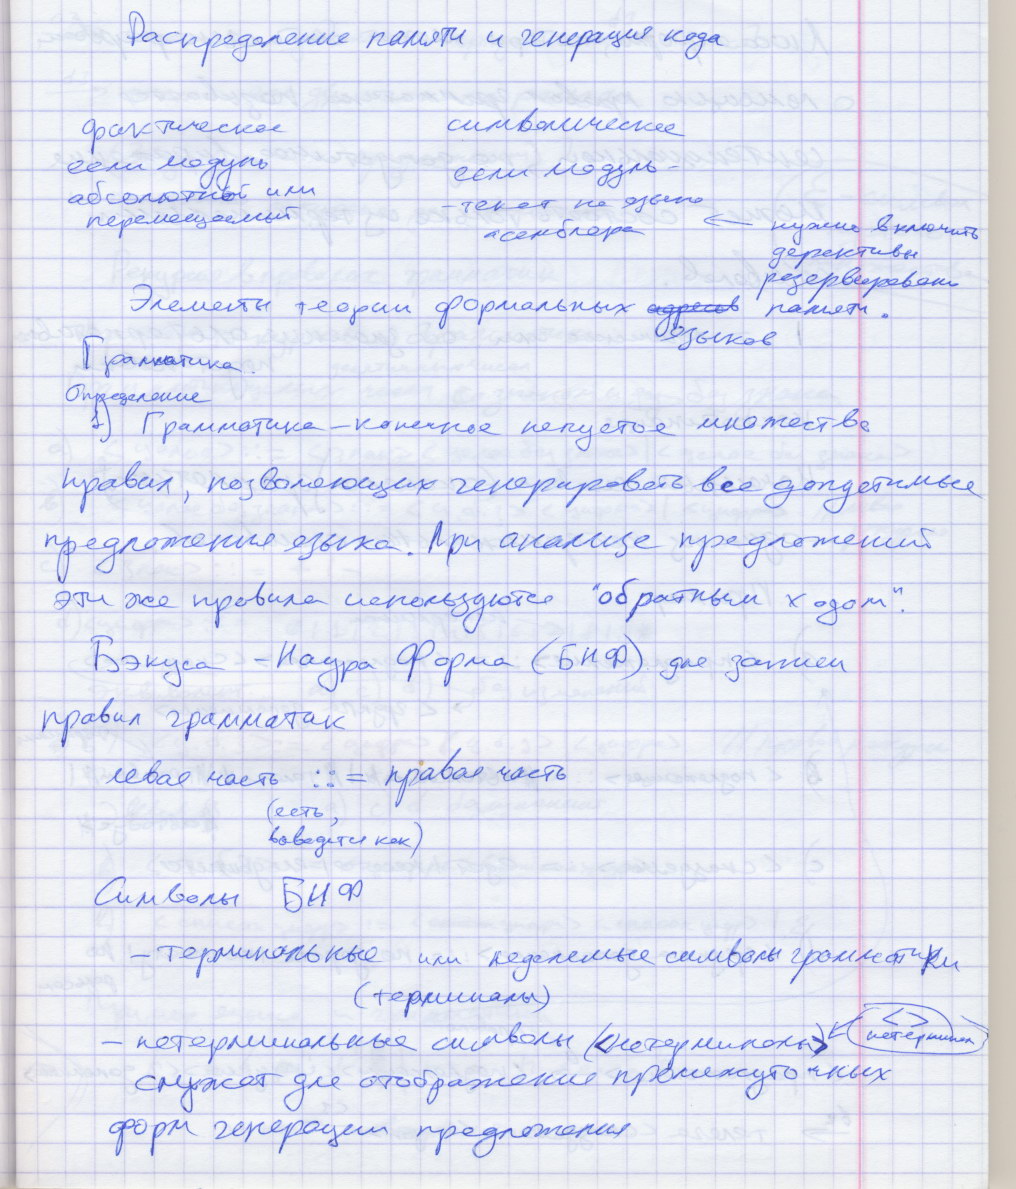 Распределение памяти и генерация кода
фактическое
если модуль
абсолютный или
перемещаемый
символическое
если модуль -
- текст на языке
ассемблера
← нужно включить
дерективы
резервировани
памяти.
Элементы теории формальных адресов
языков
Грамматика.
Определение
1) Грамматика – конечное непустое множество
правил, позволяющих генерировать все допустимые
предложения языка. При анализе предложений
эти же правила используются "обратным ходом".
Бэкуса – Наура Форма (БНФ) для записи
правил грамматик
левая часть ::= правая часть
(есть,
выводится как)
Символы БНФ
– терминальные или неделимые символы грамматики
(терминалы)
– нетерминальные символы (<нетерминалы>) ← <> нетерминал
служат для отображения промежуточных
форм генерации предложения